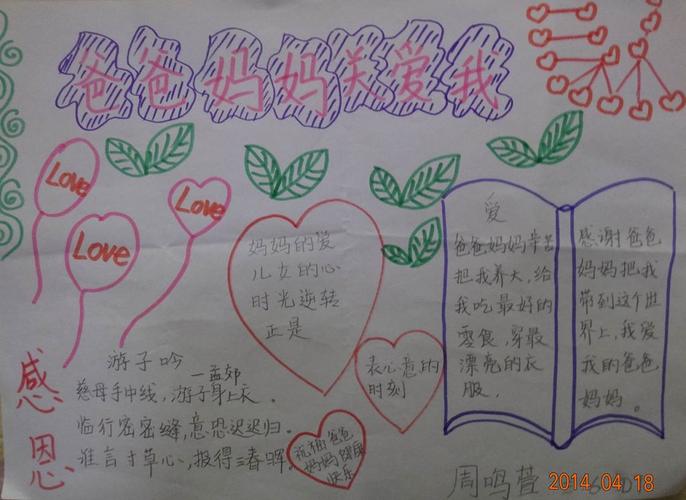 爸爸妈妈关爱我
Love
Love
Love
妈妈的爱
儿女的心
时光逆转
正是
表心意的
时刻
祝福爸爸
妈妈健康
快乐
爱
爸爸妈妈辛苦
把我养大，给
我吃最好的
零食，穿最
漂亮的衣
服。
感谢爸爸
妈妈把我
带到这个世
界上，我爱
我的爸爸
妈妈。
感恩
游子吟
—孟郊
慈母手中线，游子身上衣。
临行密密缝，意恐迟迟归。
谁言寸草心，报得三春晖。
周鸣萱
2014.04.18